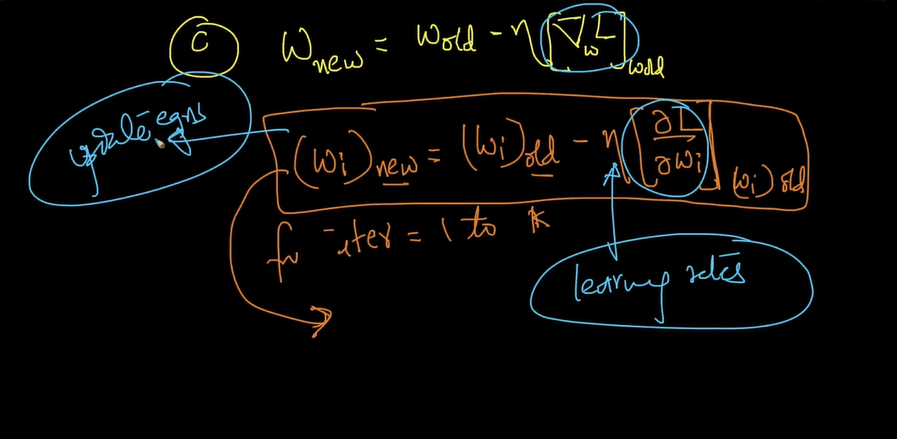 C W_new = W_old - η [∇_w L]_w_old
update eqns
(Wi)_new = (Wi)_old - η [∂L/∂Wi]_(Wi)old
for iter = 1 to K
learning rates